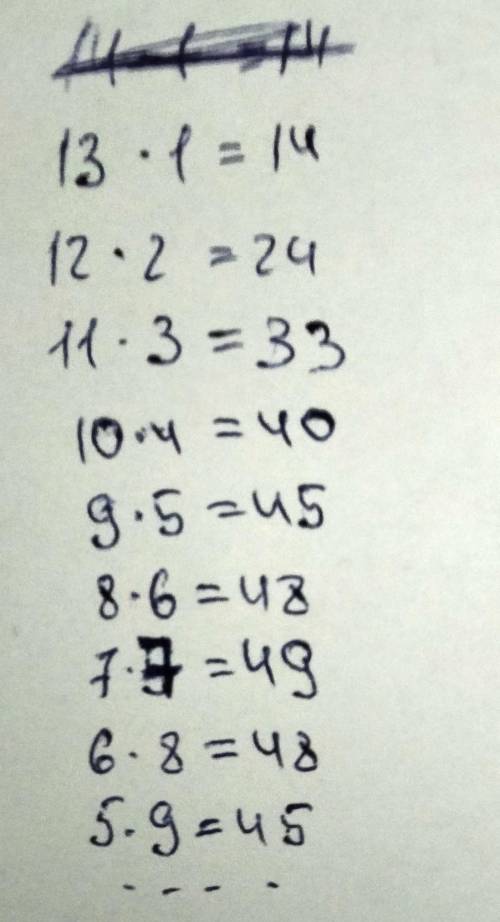 14 · 1 = 14
13 · 1 = 14
12 · 2 = 24
11 · 3 = 33
10 · 4 = 40
9 · 5 = 45
8 · 6 = 48
7 · 7 = 49
6 · 8 = 48
5 · 9 = 45
. - - - .